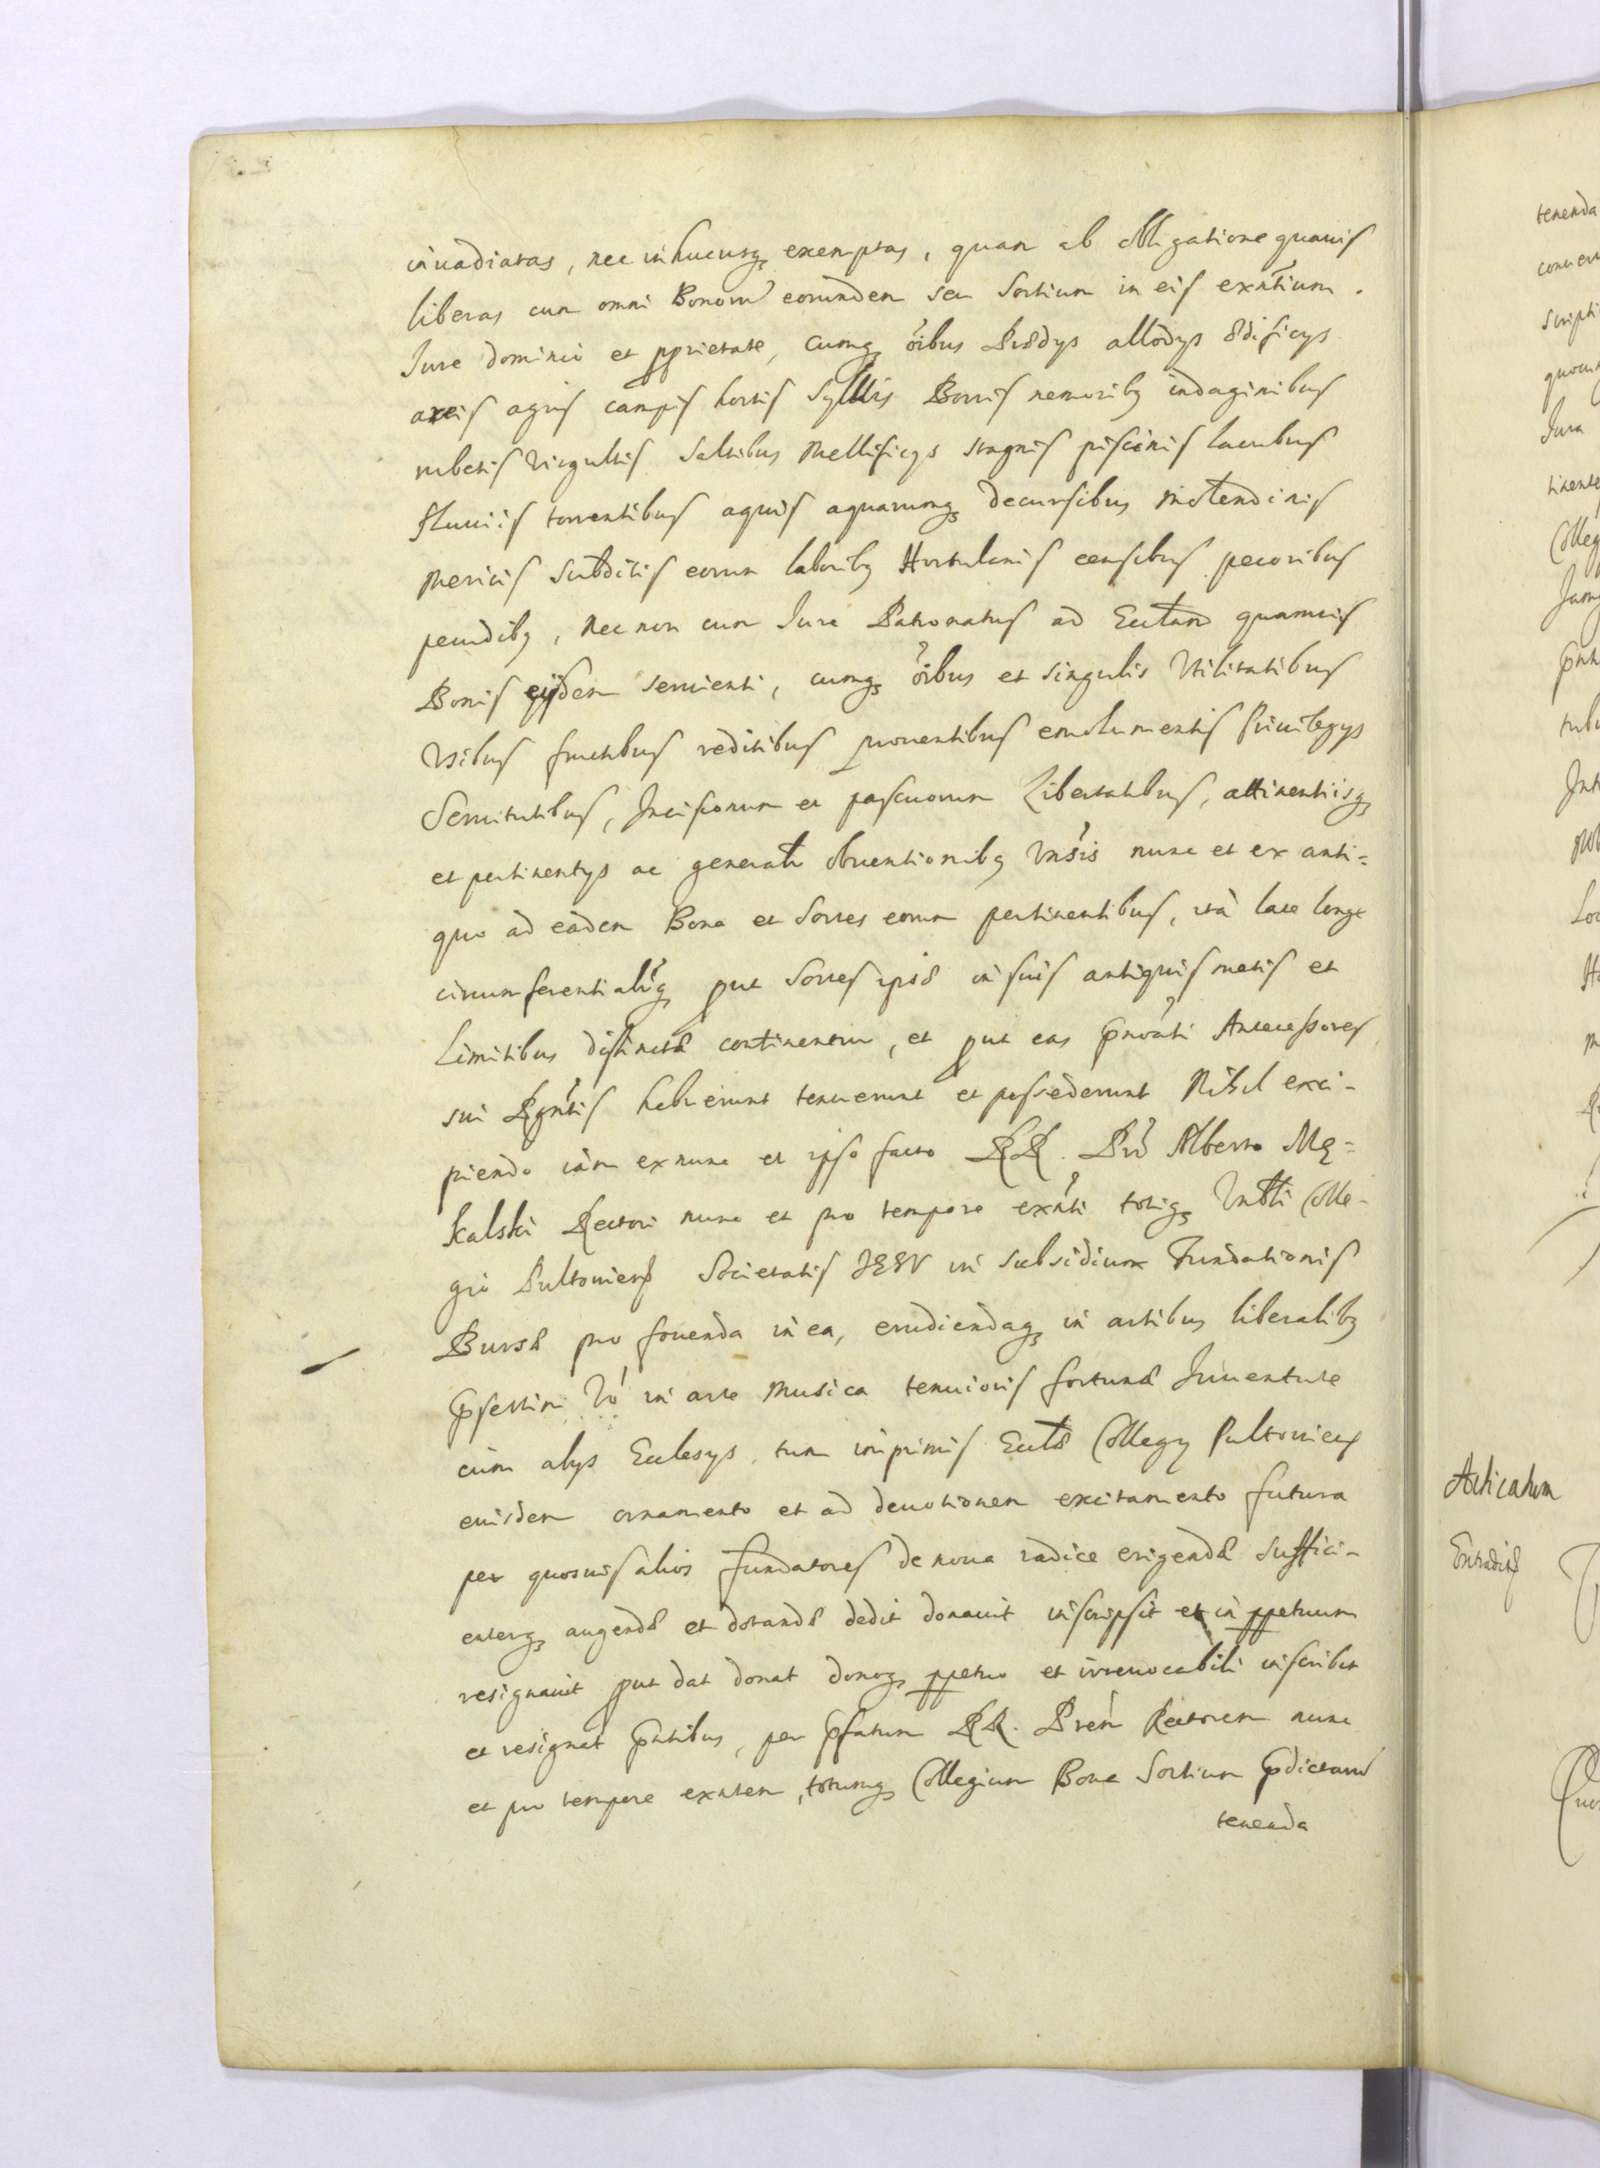 inuadiatas, nec in hucusq exemptas, quam ab obligatione quauis
liberas cum omni Bonorũ eorundem seu Sortium in eis exñtium.
Jure dominio et pprietate, cumq oĩbus Prædys allodys ædificys
areis agris campis hortis Syluis Borris nemoribq indaginibus
rubetis virgultis Saltibus Mellificys stagnis piscinis lacubus
fluuiis torrentibus aquis aquarumq decursibus Molendinis
Mericis Subditis eorum laboribq Hortulanis censibus pecoribus
pecudibq, Nec non cum Jure Patronatus ad Eccłam quamuis
Bonis eijsdem seruienti, cumq oĩbus et singulis Vtilitatibus
Vsibus fructibus reditibus prouentibus emolumentis Priuilegys
Seruitutibus, Incisionum et pascuorum Libertatibus, attinentiisq
et pertinentys ac generałr obuentionibq Vnĩsis nunc et ex anti=
quo ad eadem Bona et Sortes eorum pertinentibus, ità late longe
circumferentialr̃q put Sortes ipsæ in suis antiquis metis et
Limitibus distinctæ continentur, et put eas pnoãti Antecessores
sui Rgñtis habuerunt tenuerunt et possederunt Nihil exci-
piendo iàm exnunc et ipso facto RR. Prĩ Alberto Mę=
kalski Rectori nunc et pro tempore exñti totiq Vnĩsti Colle-
gio Pultouiens Societatis JESV in subsidium Fundationis
Bursæ pro fouenda in ea, erudiendaq in artibus liberalibq
pserttim Vò in arte Musica tenuioris fortunæ Juuentute
cùm alys Ecclesys tum inprimis Eccłæ Collegy Pultouien
euisdem ornamento et ad deuotionem excitamento futura
per quosuis alios Fundatores de noua radice erigendæ suffici-
enterq augendæ et dotandæ dedit donauit inscripsit et in ppetuum
resignauit put dat donat donoq ppetuo et irreuocabili inscribit
et resignat pñtibus, per pfatum RR. Prẽm Rectorem nunc
et pro tempore exñtem, totumq Collegium Bona Sortium pdictarũ
tenenda
Articatum